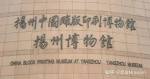 揚州中國雕版印刷博物館
揚州博物館
CHINA BLOCK PRINTING MUSEUM AT YANGZHOU YANGZHOU MUSEUM